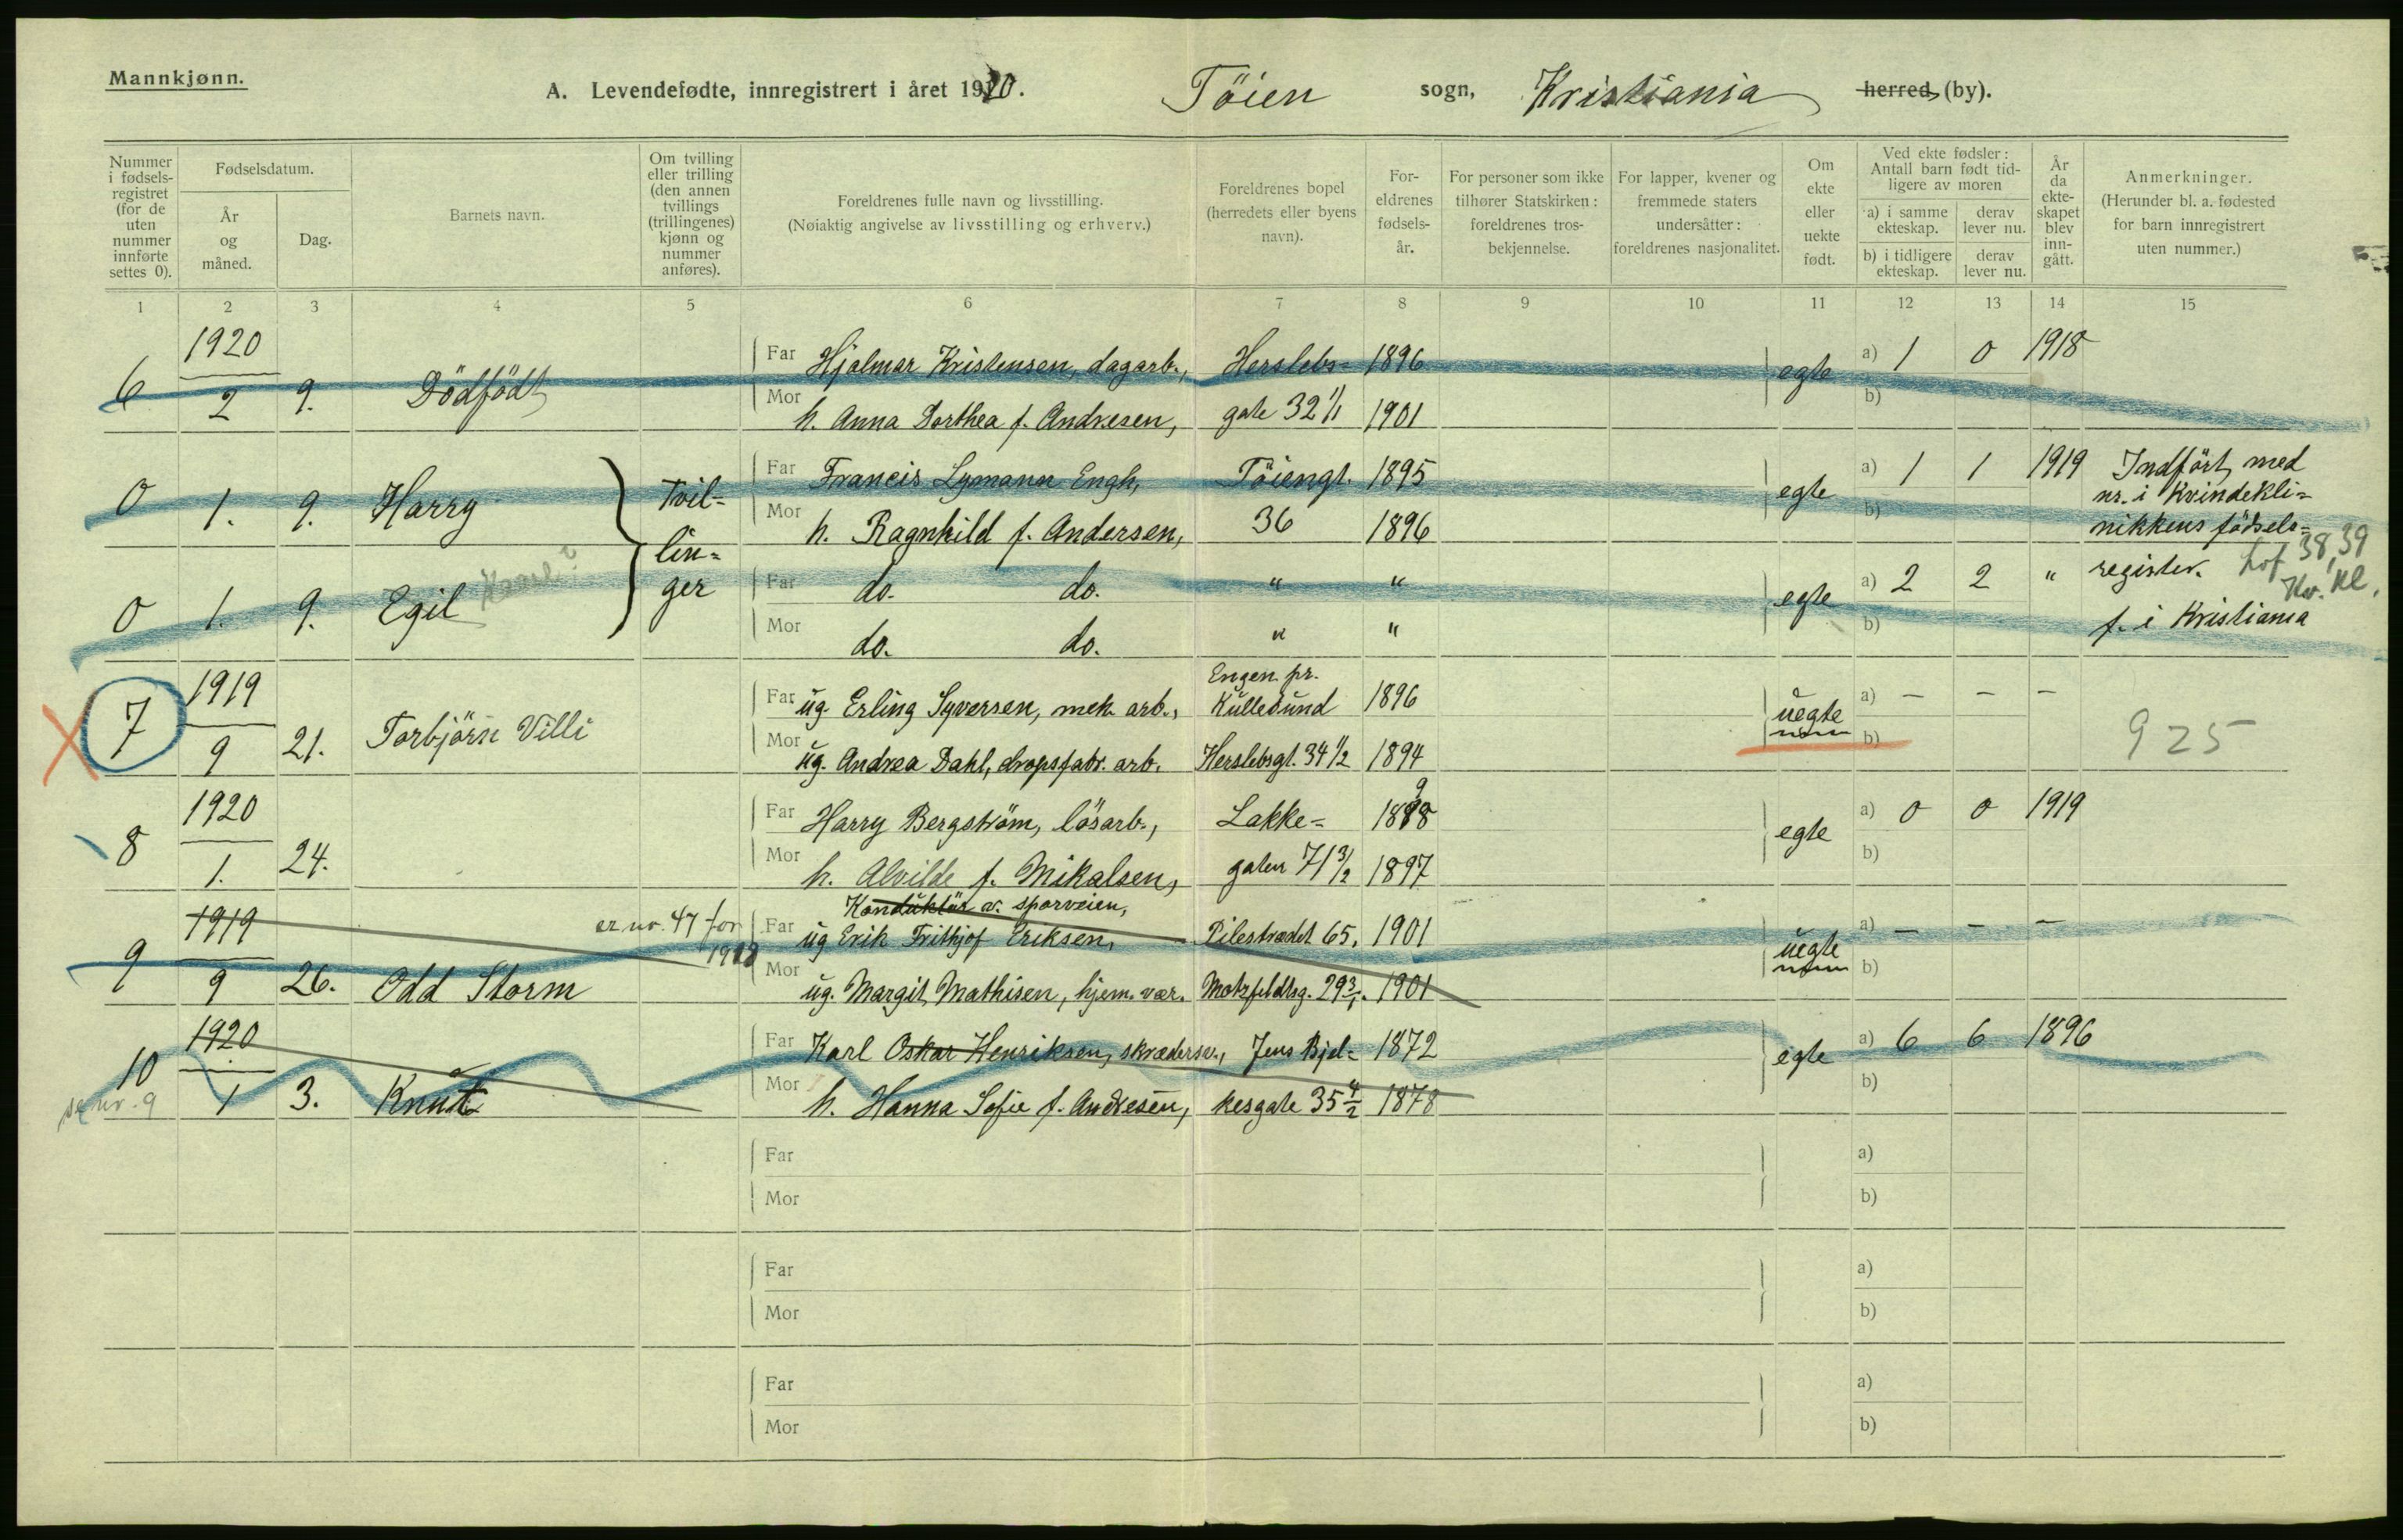 Mannkjønn.
A. Levendefødte, innregistrert i året 1920. Töien sogn, Kristiania herred (by).
Nummer i fødsels- registret (for de uten nummer innførte settes 0).
Fødselsdatum.
År og måned.
Dag.
Barnets navn.
Om tvilling eller trilling (den annen tvillings (trillingenes) kjønn og nummer anføres).
Foreldrenes fulle navn og livsstilling.
(Nøiaktig angivelse av livsstilling og erhverv.)
Foreldrenes bopel (herredets eller byens navn).
For- eldrenes fødsels- år.
For personer som ikke tilhører Statskirken: foreldrenes tros- bekjennelse.
For lapper, kvener og fremmede staters undersåtter: foreldrenes nasjonalitet.
Om ekte eller uekte født.
Ved ekte fødsler: Antall barn født tid- ligere av moren
a) i samme ekteskap.
derav lever nu.
b) i tidligere ekteskap.
derav lever nu.
År da ekte- skapet blev inn- gått.
Anmerkninger.
(Herunder bl. a. fødested for barn innregistrert uten nummer.)
1 2 3 4 5 6 7 8 9 10 11 12 13 14 15
1920
6 2 9. Dödfödt
Far Hjalmar Kristensen, dagarb., Herslebs= 1896 egte a) 1 0 1918
Mor h. Anna Dorthea f. Andresen, gate 32 1/1 1901 b)
0 1. 9. Harry Tvil=
Far Francis Lymann Engh, Töiengt. 1895 egte a) 1 1 1919 Indfört med
nr. i Kvindekli=
Mor h. Ragnhild f. Andersen, 36 1896 b) nikkens födsels=
lin= register. 38,39
Kv. Kl.
0 1. 9. Egil ger
Far do. do. " " egte a) 2 2 "
Mor do. do. " " b) f. i Kristiania
1919
7 9 21. Torbjörn Villi
Engen pr.
Far ug. Erling Syversen, mek. arb., Kullebund 1896 uegte a) – – –
Mor ug. Andrea Dahl, dropsfabr. arb. Herslebsgt. 34 1/2 1894 b) 925
1920
8 1. 24.
Far Harry Bergström, lösarb., Lakke= 1898 egte a) 0 0 1919
Mor h. Alvilde f. Mikalsen, gaten 71 3/2 1897 b)
1919 er nr. 47 for
9 9 26. Odd Storm
Konduktör v. sporveien,
Far ug Erik Frithjof Eriksen, Pilestrædet 65, 1901 uegte a) – – –
Mor ug. Margit Mathisen, hjem. vær. Motzfeldtsg. 29 3/1. 1901 b)
1920
10 1 3. Knut
se nr. 9
Far Karl Oskar Henriksen, skræddersv., Jens Bjel= 1872 egte a) 6 6 1896
Mor h. Hanna Sofie f. Andresen, kesgate 35 4/2 1878 b)
Far a)
Mor b)
Far a)
Mor b)
Far a)
Mor b)